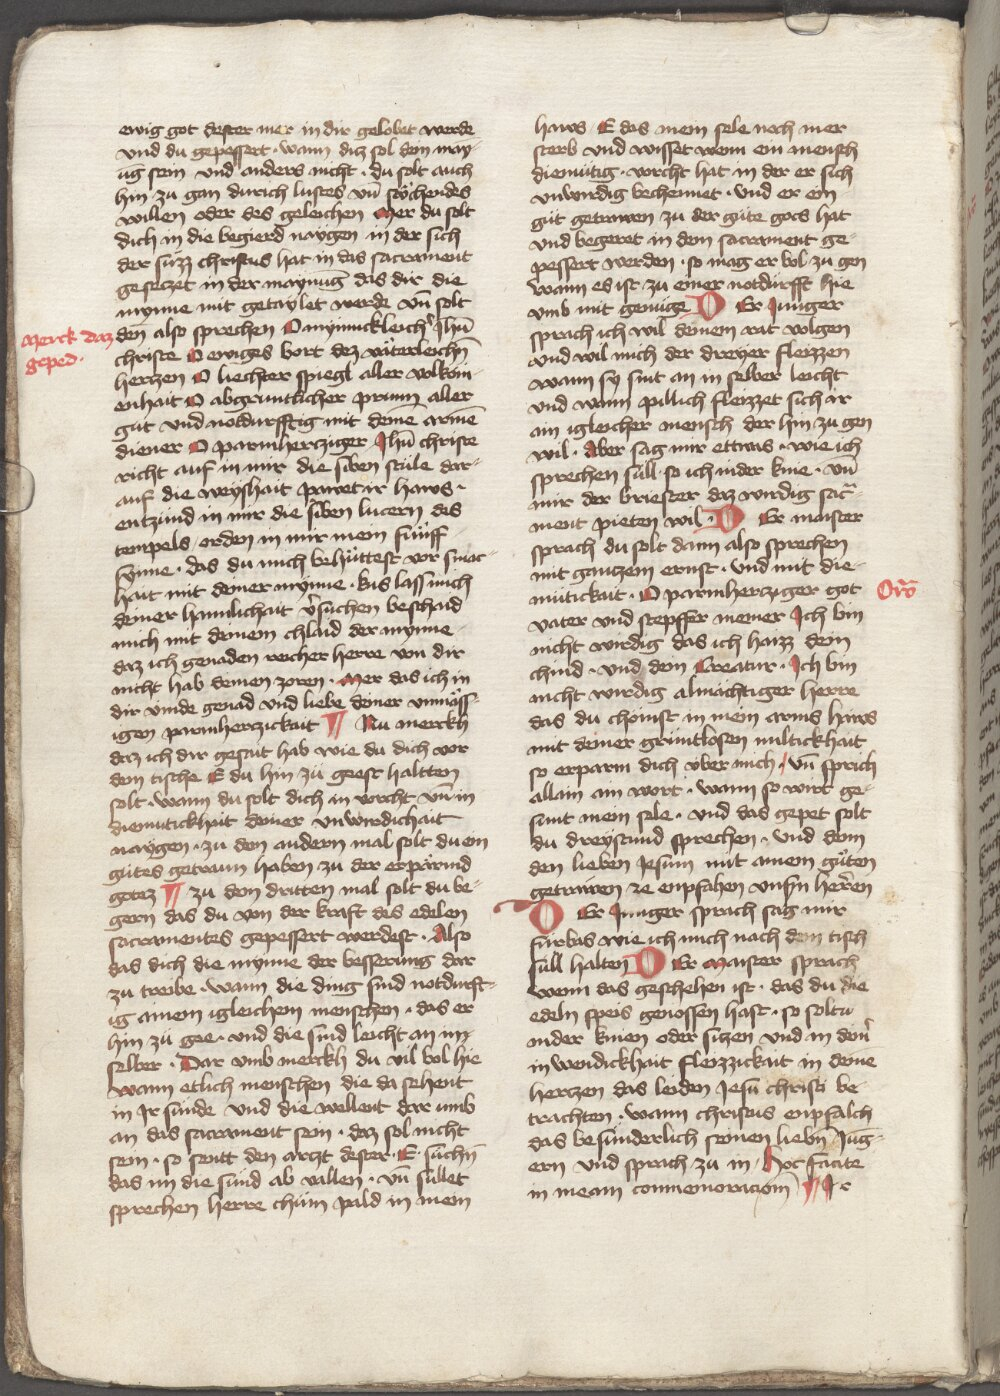 ewig got dester mer in dir gelobet werde
vnd du gepessert · wann daz sol dein may¬
ug sein vnd anders nicht · du solt auch
hin zu gan durich lustes vn̄ sůchendes
willen oder des geleichen Mer du solt
dich in die begierd naygen in der sich
der süzz christus hat in das sacrament
geseczet in der maynūg das dir die
mynne mit getaylet werde vn̄ solt
Merck daz
geped ·
den also sprechen O mynnickleich̓ Jhū
christe O ewiges bort dez väterleichn̄
herczen O liechter spiegl aller volkom¬
enhait O abgruntlicher prunn aller
gut vnd notdurfftig mit deinē armē
diener O parmhercziger Jhū christe
richt auf in mir die siben säile dar¬
auf die weyshait pawet ir haws ·
entzünd in mir die siben lucern des
tempels / erden in mir mein fünff
synne · das du mich behüttest vor
hait mit deiner mynne · las mich
deiner hainlichait v̓suchen beschaid
mich mit deinem chlaid der mynne
daz ich genaden reicher herre von dir
nicht hab deinen zoren · Mer das ich in
dir vinde genad vnd liebe deiner vnmäss¬
igen parmherczickait ¶ Nu merckh
daz ich dir gesait hab wie du dich vor
dem tische E du hin zü geest haltten
solt · wann du solt dich in vorcht vn̄ in
diemutickhait deiner vnwirdichait
naygen · zu dem andern mal solt du ein
gütes getrawn haben zu der erpärmd
gotez ¶ zu dem dritten mal solt du be¬
gern das du von der kraft des edelen
sacramentes gepessert werdest · Also
das dich die mynne der besserung dar
zu treibe · wann die ding sind notdurft¬
ig ainem igleichem menschen · das er
hin zü gee · vnd die sind leicht an im
selber · Dar vmb merckh du vil bol hie
wann etlich menschen die da sehent
in Jr sünde vnd die wellent dar vmb
an das sacrament sein · daz sol nicht
sein · so seütt den arczt dester · E suchn̄
das im die sünd ab vallen · vn̄ süllet
sprechen herre chüm pald in mein
haws · E das mein sele noch mer
sterb vnd wisset wenn ein mensch
diemütig · vorcht hat in der er sich
vnwirdig bechennet · vnd er ein
güt getrawen zu der güte gocs hat
vnd begeret in dem sacrament ge¬
pessert werden · so mag er bol zu gen
wann es ist zu einer notdürfft hie
vmb mit genüge D Er Junger
sprach ich wil deinem rat volgen
vnd wil mich der dreyer fleizzen
wann sy sint an in selber leicht
vnd wann pillich fleizzet sich ir
ain igleicher mensch der hin zu gen
wil · Aber sag mir ettwas · wie ich
sprechen süll · so ich nider knie · vn̄
mir der briester daz wirdig sacr̄
ment pieten wil · D Er maister
sprach du solt dann also sprechen
mit gantzem ernst · vnd mit die¬
mütickait · O parmhercziger got
Oro̅
vater vnd schepffer meiner Ich bin
nicht wirdig das ich haizz dein
chind · vnd dein Creatur · Ich bin
nicht wirdig almächtiger herre
das du chömst in mein arms haws
mit deiner grüntlosen miltickhait
so erparm dich vber mich · / vn̄ sprich
allain ain wort · wann so wirt ge¬
sunt mein sele · vnd das gepet solt
du dreystund sprechen · vnd dein
den lieben Jesum mit ainem güten
getrawen ze enpfahen vnsm̄ herren
D Er Junger sprach sag mir
fürbas wie ich mich nach dem tisch
süll halten D Er Maister sprach
wenn das geschehen ist · das du die
edeln speis genossen hast · so soltu
nider knien oder siczen vnd in dein̓
inwendickhait fleizzickait in deinē
herczen das leiden Jesu christi be¬
trachten · wann christus enpfalch
das besünderlich seinen liebn̄ Jūg¬
ern vnd sprach zu in / Hoc facite
in meam commemoracōm̄ ¶ Jr